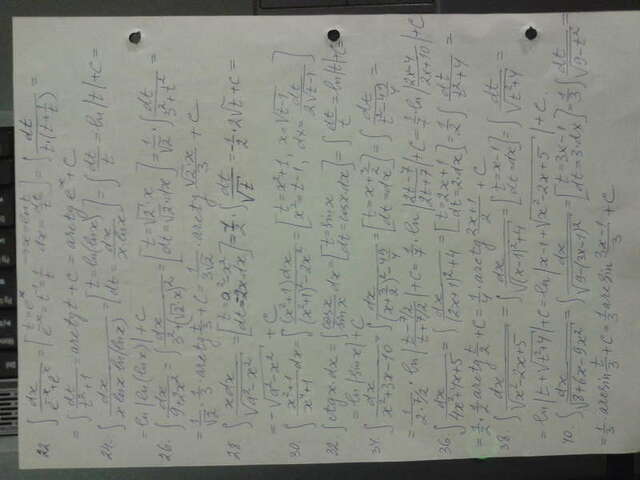 22. ∫ dx/(e^-x + e^x) = [t = e^x → x = ln t, e^-x = t^-1 = 1/t, dx = dt/t] = ∫ dt/(t(t + 1/t)) =
= ∫ dt/(t²+1) = arctg t + C = arctg e^x + C
24. ∫ dx/(x ln x ln(ln x)) = [t = ln(ln x), dt = dx/(x ln x)] = ∫ dt/t = ln|t| + C =
= ln|ln(ln x)| + C
26. ∫ dx/(9+2x²) = ∫ dx/(3²+(√2 x)²) = [t = √2·x, dt = √2·dx] = 1/√2 · ∫ dt/(3²+t²) =
= 1/√2 · 1/3 · arctg t/3 + C = 1/(3√2) · arctg (√2x)/3 + C
28. ∫ xdx/√(a²-x²) = [t = a²-x², dt = 2x·dx] = 1/2 · ∫ dt/√t = 1/2 · 2√t + C =
= -√(a²-x²) + C
30. ∫ (x²+1)/(x⁴+1) dx = ∫ (x²+1)dx/((x²+1)²-2x²) = [t = x²+1, x = √(t-1), x² = t-1, dx = dt/(2√(t-1))]
32. ∫ ctgx dx = ∫ cosx/sinx dx = [t = sinx, dt = cosx dx] = ∫ dt/t = ln|t| + C =
= ln|sinx| + C
34. ∫ dx/(x²+3x-10) = ∫ dx/((x+3/2)² - 49/4) = [t = x+3/2, dt = dx] = ∫ dt/(t² - 49/4) =
= 1/(2·7/2) · ln|(t-7/2)/(t+7/2)| + C = 1/7 · ln|(2t-7)/(2t+7)| + C = 1/7 ln|(2x+4)/(2x+10)| + C
36. ∫ dx/(4x²+4x+5) = ∫ dx/((2x+1)²+4) = [t = 2x+1, dt = 2·dx] = 1/2 ∫ dt/(t²+4) =
= 1/2 · 1/2 arctg t/2 + C = 1/4 · arctg (2x+1)/2 + C
38. ∫ dx/√(x²-2x+5) = ∫ dx/√((x-1)²+4) = [t = x-1, dt = dx] = ∫ dt/√(t²+4) =
= ln|t + √(t²+4)| + C = ln|x-1 + √(x²-2x+5)| + C
40. ∫ dx/√(8+6x-9x²) = ∫ dx/√(9-(3x-1)²) = [t = 3x-1, dt = 3·dx] = 1/3 ∫ dt/√(9-t²) =
= 1/3 arcsin t/3 + C = 1/3 arcsin (3x-1)/3 + C